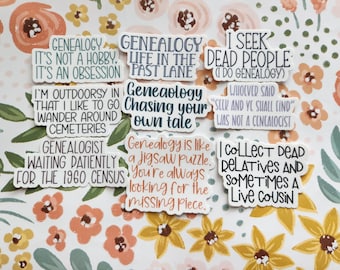 GENEALOGY
IT'S NOT A HOBBY,
IT'S AN OBSESSION
GENEALOGY
LIFE IN THE
FAST LANE
I SEEK
DEAD PEOPLE
(I DO GENEALOGY)
I'M OUTDOORSY IN
THAT I LIKE TO GO
WANDER AROUND
CEMETERIES
Geneaology
Chasing your
own tale
WHOEVER SAID
"SEEK AND YE SHALL FIND"
WAS NOT A GENEALOGIST
GENEALOGIST
WAITING PATIENTLY
FOR THE 1960 CENSUS
Genealogy is like
a jigsaw puzzle,
you're always
looking for the
missing piece.
I COLLECT DEAD
RELATIVES AND
SOMETIMES A
LIVE COUSIN